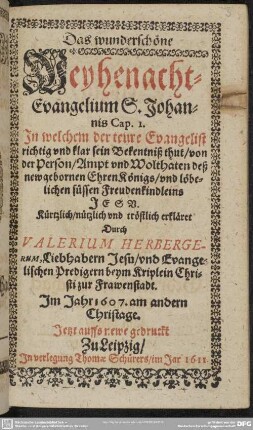 Das wunderschöne
Weyhenacht-
Evangelium S. Johan-
nis Cap. 1.
In welchem der teure Evangelist
richtig vnd klar sein Bekentniß thut/von
der Person/Ampt vnd Wolthaten deß
newgebornen EhrenKönigs/vnd löbe-
lichen süssen Freudenkindleins
JESV.
Kürtzlich/nützlich vnd tröstlich erkläret
Durch
VALERIUM HERBERGE-
RUM, Liebhabern Jesu/vnd Evange-
lischen Predigern beym Kriplein Chri-
sti zur Frawenstadt.
Im Jahr 1607. am andern
Christage.
Jetzt auffs newe gedruckt
Zu Leipzig/
In verlegung Thomæ Schürers/im Jar 1611.
DFG